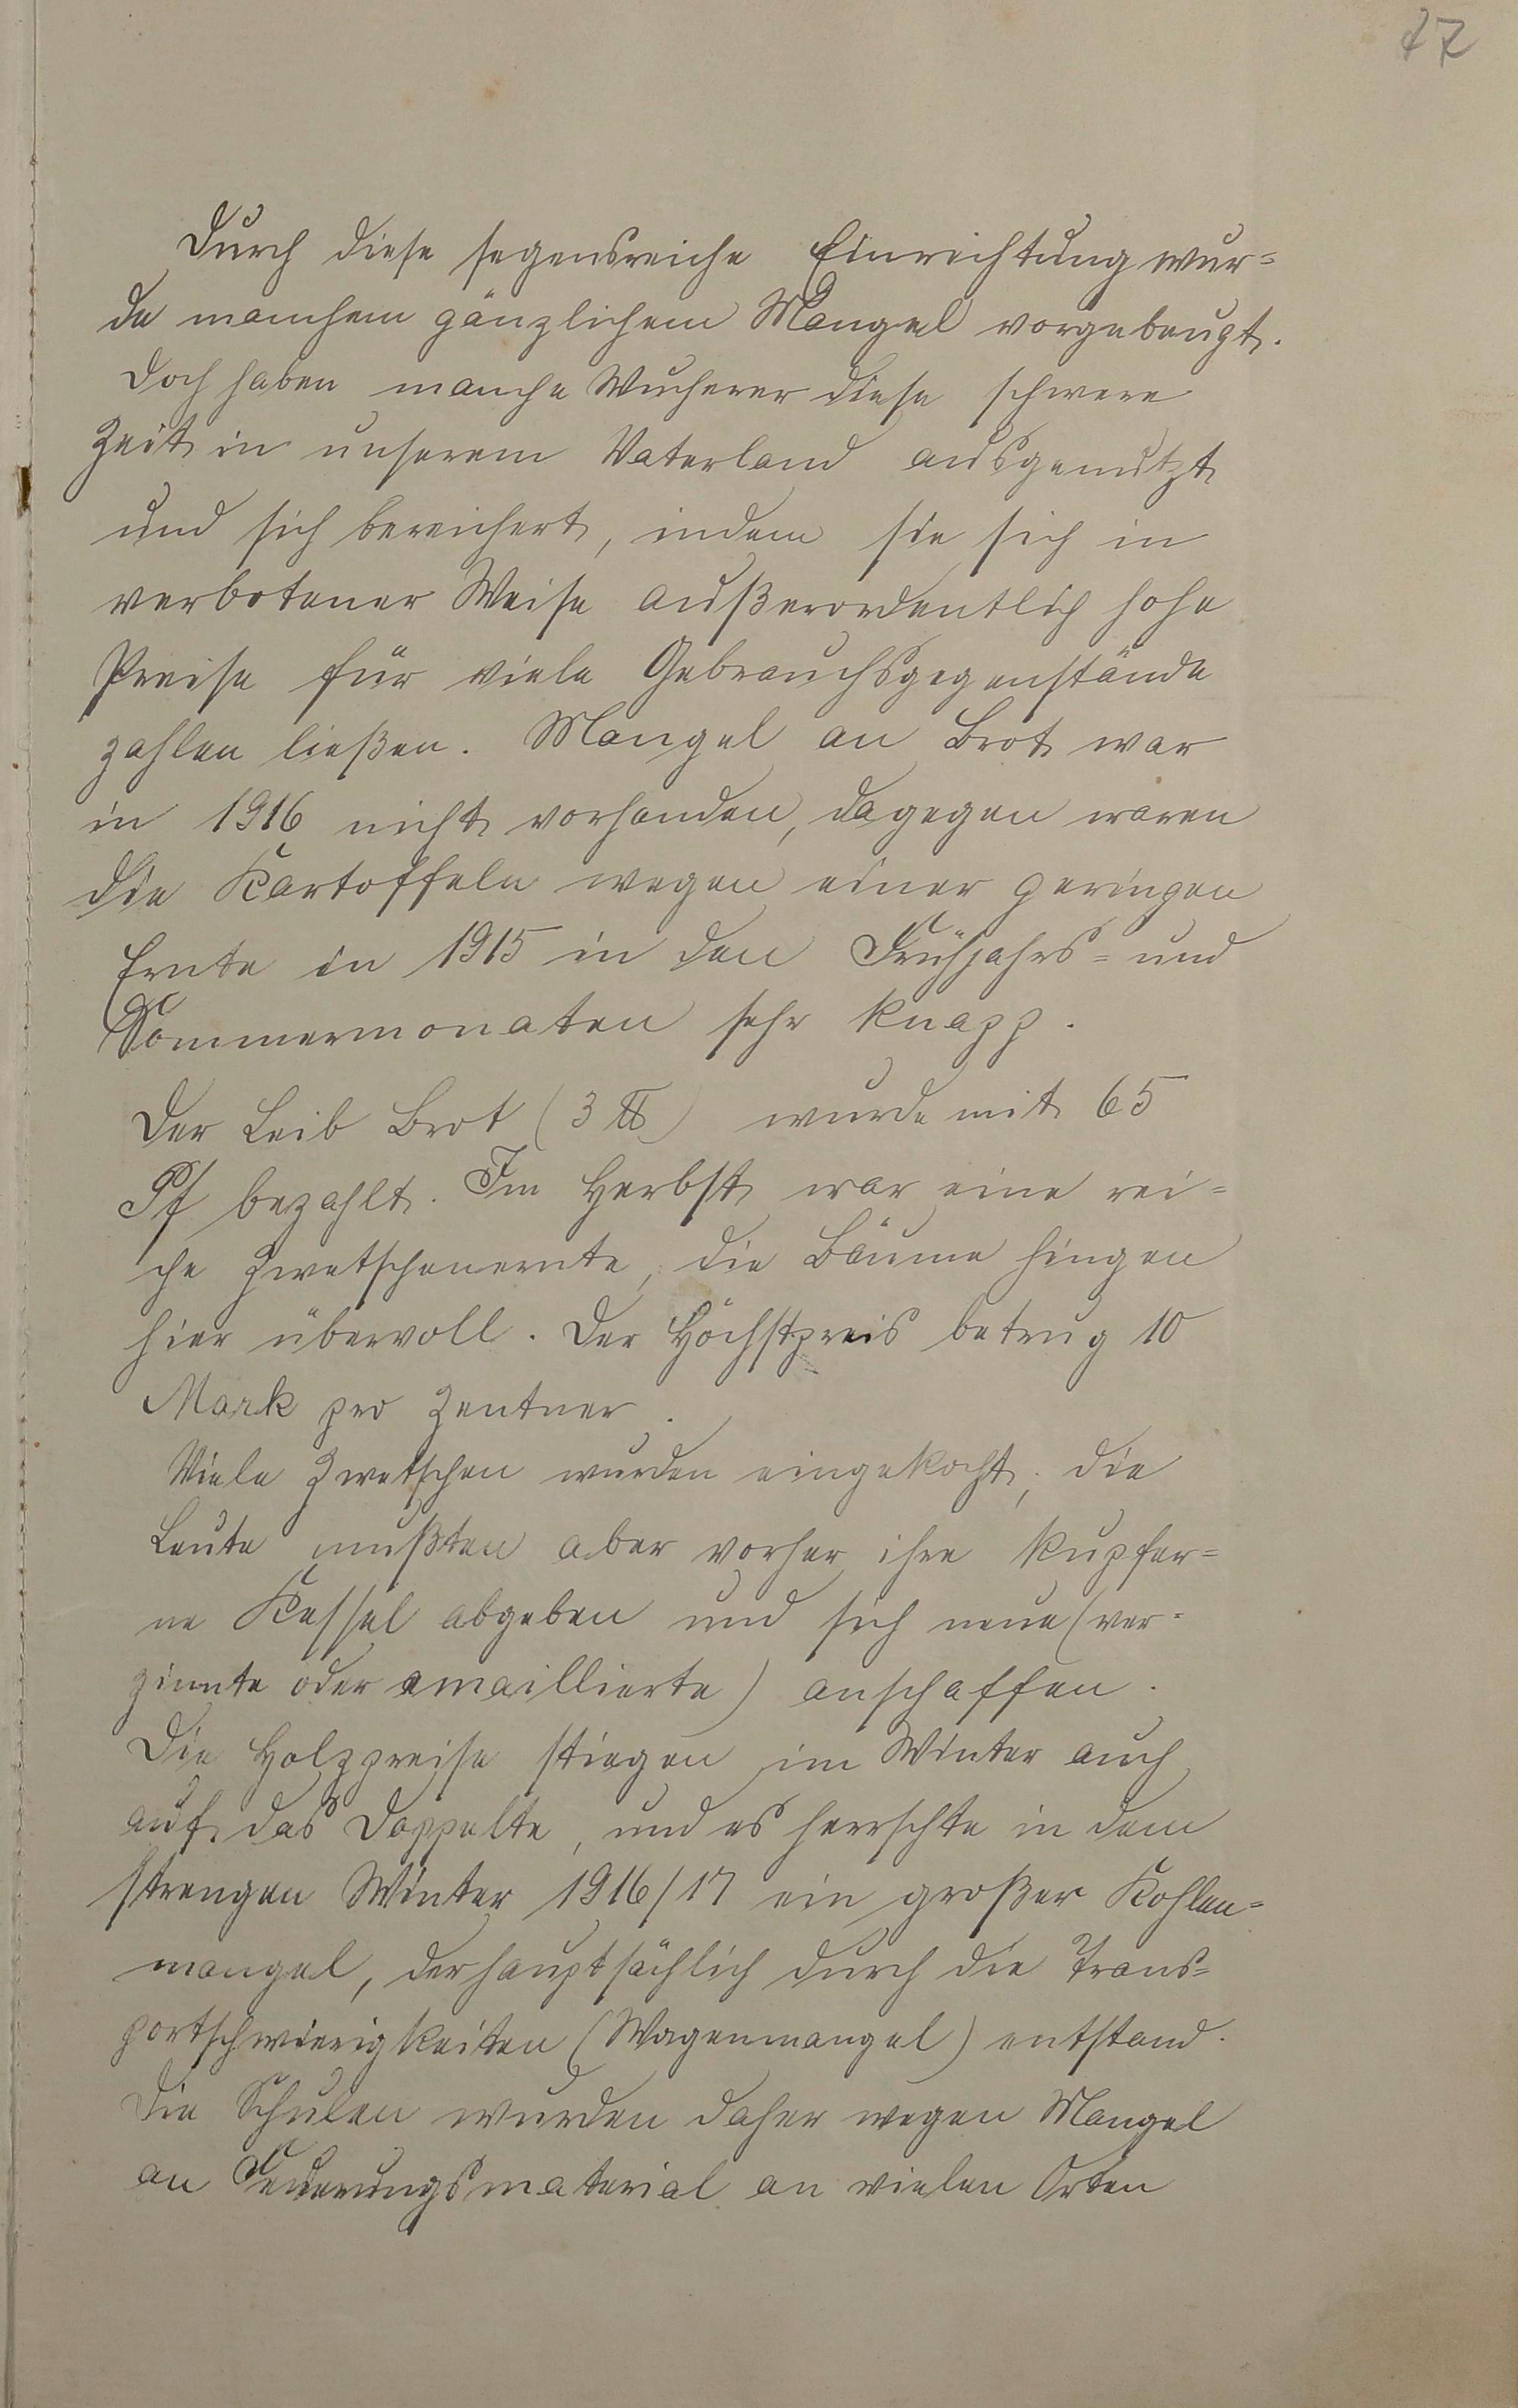 27
Durch diese segensreiche Einrichtung wur=
de manchem gänzlichem Mangel vorgebeugt.
Doch haben manche Wucherer diese schwere
Zeit in unserem Vaterland ausgenutzt
und sich bereichert, indem sie sich in
verbotener Weise außerordentlich hohe
Preise für viele Gebrauchsgegenstände
zahlen ließen. Mangel an Brot war
in 1916 nicht vorhanden, dagegen waren
die Kartoffeln wegen einer geringen
Ernte in 1915 in den Frühjahrs= und
Sommermonaten sehr knapp.
Der Leib Brot (3 ℔) wurde mit 65
Pf bezahlt. Im Herbst war eine rei=
che Zwetschenernte, die Bäume hingen
hier übervoll. Der Höchstpreis betrug 10
Mark pro Zentner.
Viele Zwetschen wurden eingekocht; die
Leute mußten aber vorher ihre kupfer=
ne Kessel abgeben und sich neue (ver=
zinnte oder emaillierte) anschaffen.
Die Holzpreise stiegen im Winter auch
auf das Doppelte, und es herrschte in dem
strengen Winter 1916/17 ein großer Kohlen=
mangel, der hauptsächlich durch die Trans=
portschwierigkeiten (Wagenmangel) entstand.
Die Schulen wurden daher wegen Mangel
an Feuerungsmaterial an vielen Orten